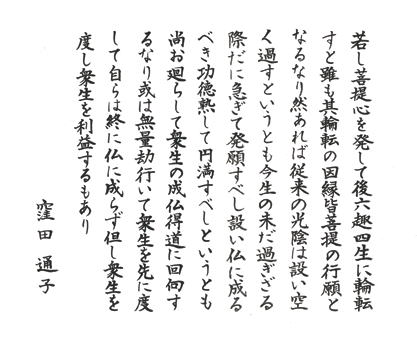 若し菩提心を発して後六趣四生に輪転
すと雖も其輪転の因縁皆菩提の行願と
なるなり然あれば従来の光陰は設い空
く過すというとも今生の未だ過ぎざる
際だに急ぎて発願すべし設い仏に成る
べき功徳熟して円満すべしというとも
尚お廻らして衆生の成仏得道に回向す
るなり或は無量劫行いて衆生を先に度
して自らは終に仏に成らず但し衆生を
度し衆生を利益するもあり
窪田通子